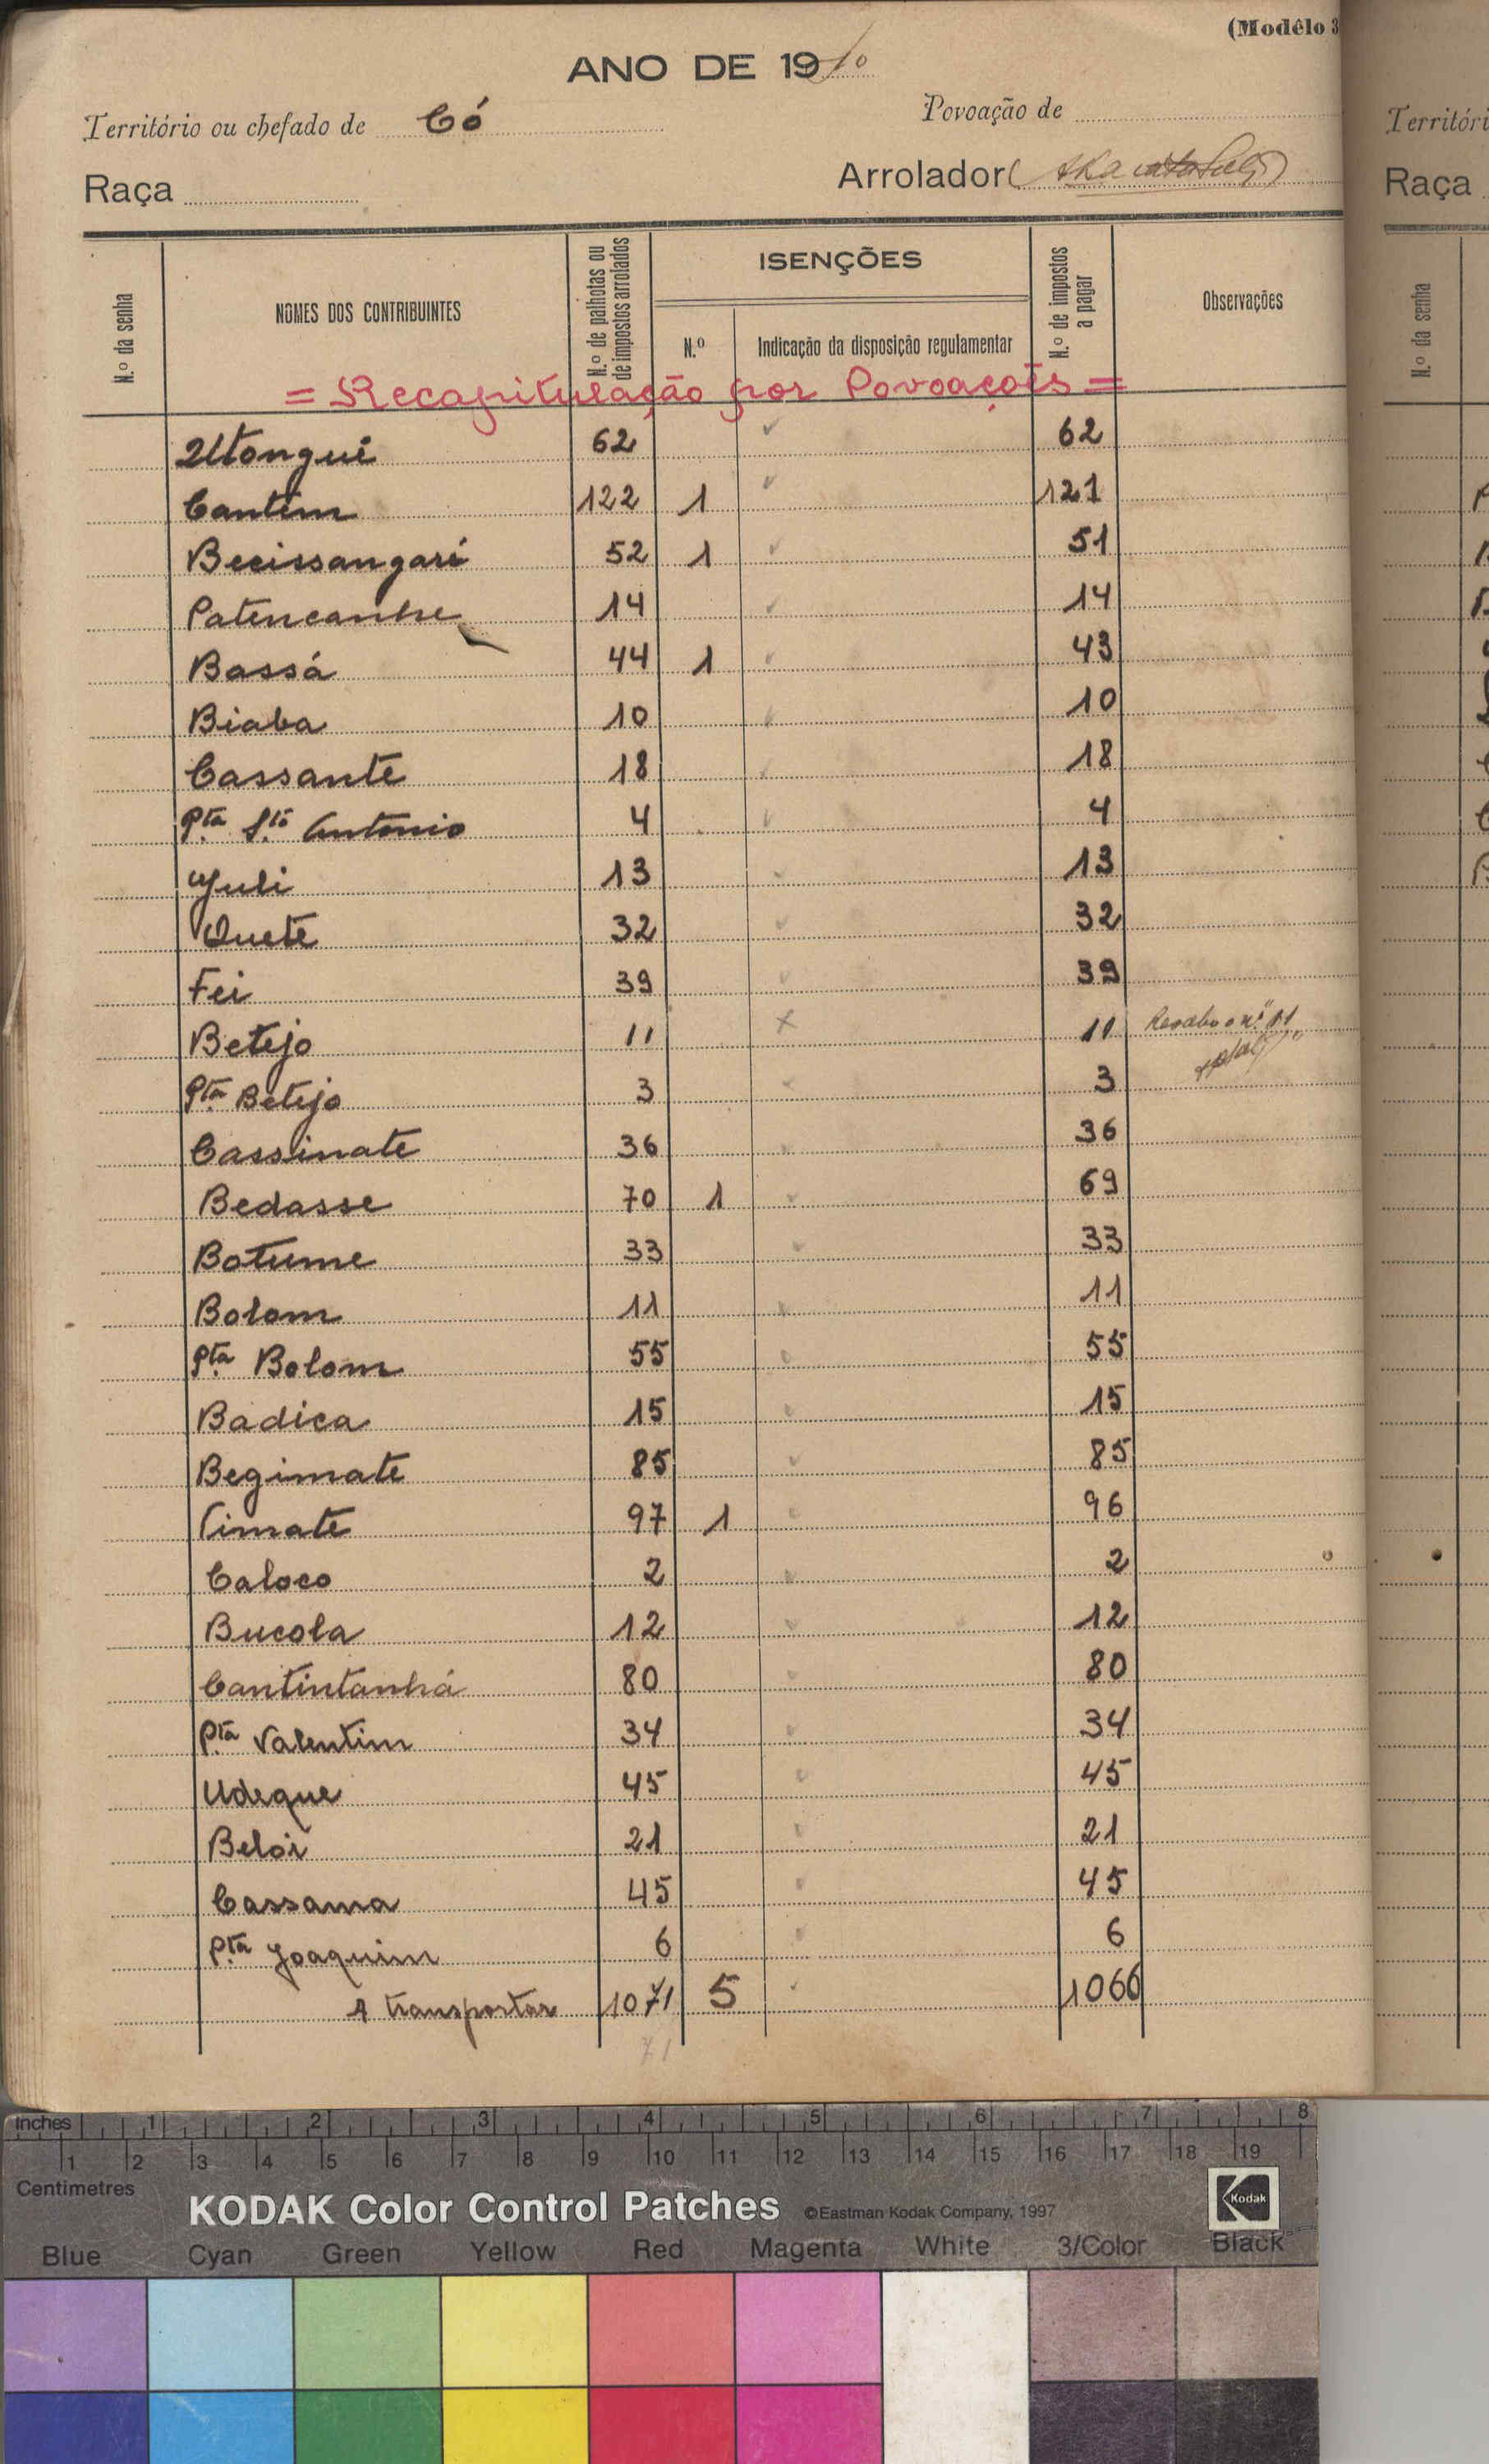 (Modêlo 3
ANO DE 19
Território ou chefado de Có
Povoação de
Raça
Arrolador
N.º da senha
NOMES DOS CONTRIBUINTES
N.º de palhotas ou de impostos arrolados
ISENÇÕES
N.º
Indicação da disposição regulamentar
N.º de impostos a pagar
Observações
= Recapitulação por Povoações =
62 62
Cantim 122 1 121
Becissangaré 52 1 51
Patencanhe 14 14
Bassá 44 1 43
Biaba 10 10
Cassante 18 18
Pta Sto Antonio 4 4
Yuli 13 13
Quete 32 32
Fei 39 39
Betejo 11 11
Pta Betejo 3 3
Cassinate 36 36
Bedasse 70 1 69
Botume 33 33
Bolom 11 11
Pta Bolom 55 55
Badica 15 15
Begimate 85 85
Timate 97 1 96
Caloco 2 2
Bucola 12 12
Cantintanhá 80 80
Pta Valentim 34 34
Udeque 45 45
Belór 21 21
Cassama 45 45
Pta Joaquim 6 6
A transportar 1071 5 1066
71
Territóri
Raça
N.º da senha
Inches 1 2 3 4 5 6 7 8
1 2 3 4 5 6 7 8 9 10 11 12 13 14 15 16 17 18 19
Centimetres
KODAK Color Control Patches ©Eastman Kodak Company, 1997 Kodak
Blue Cyan Green Yellow Red Magenta White 3/Color Black